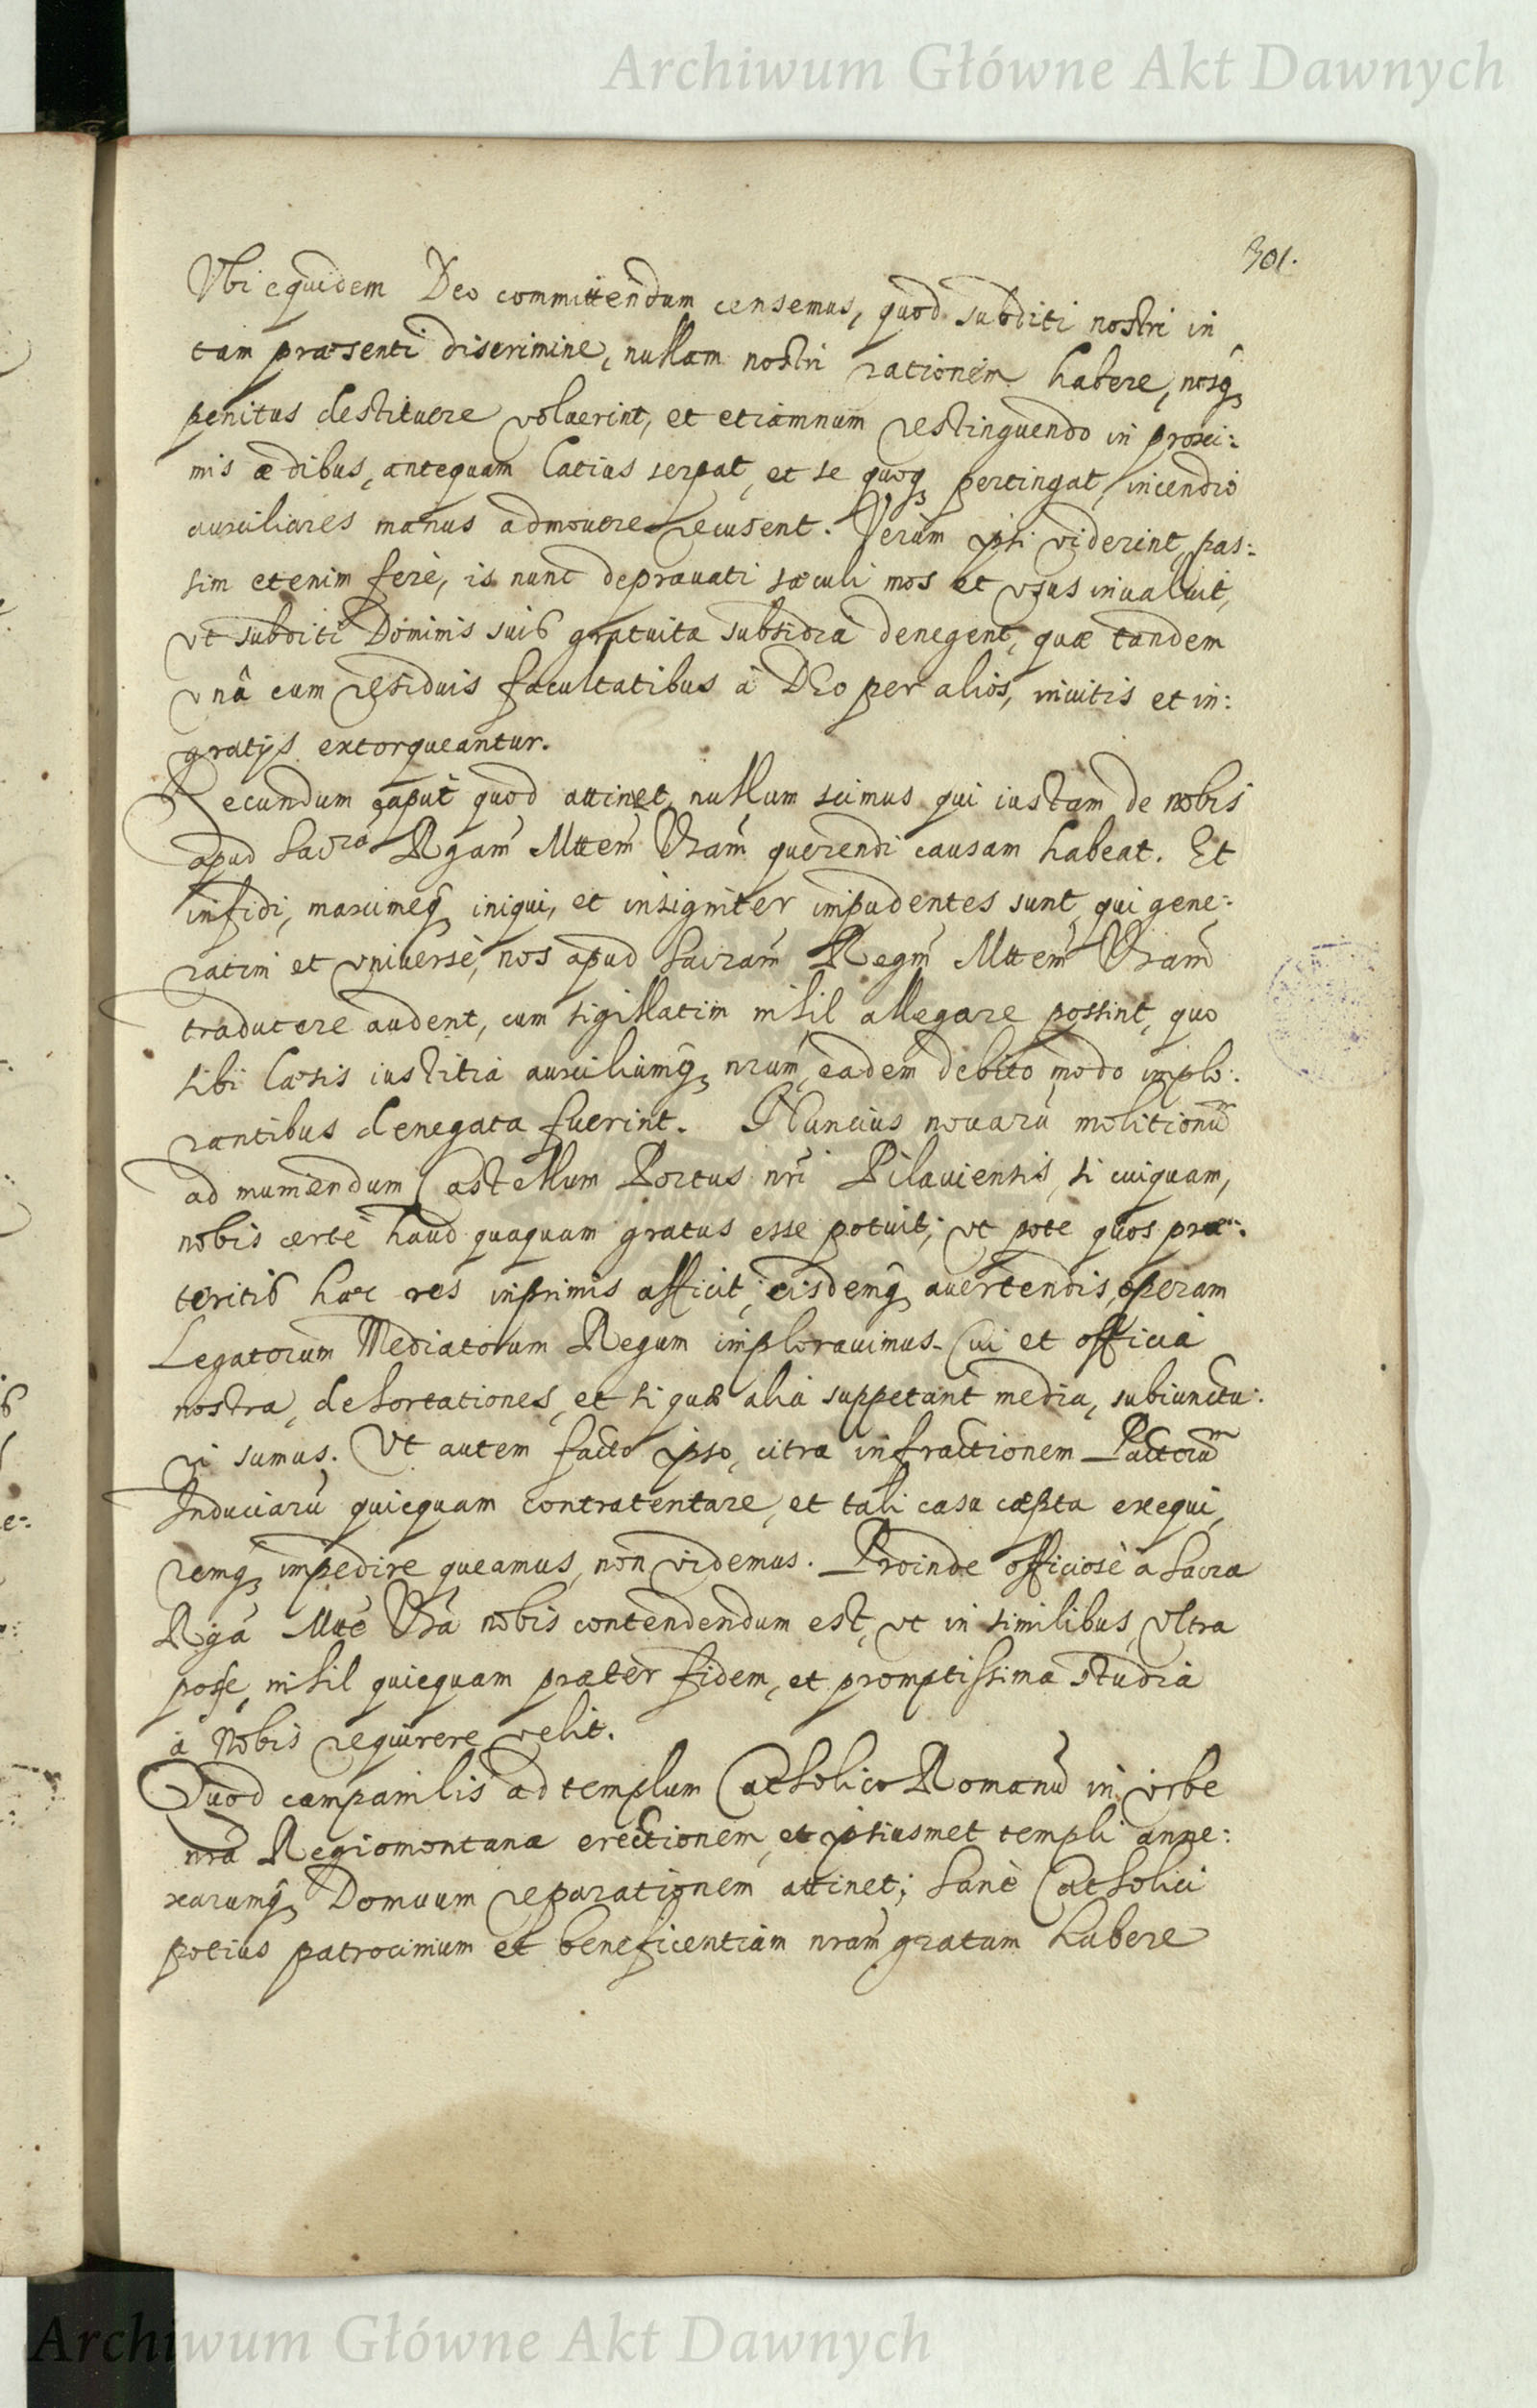 Archiwum Główne Akt Dawnych
301.
Vbi equidem Deo committendum censemus, quod subditi nostri in
tam præsenti discrimine, nullam nostri rationem habere, nosq́
penitus destituere voluerint, et etiamnum restinguendo in proxi:
mis ædibus, antequam latius serpat, et se quoq́ pertingat, incendio
auxiliares manus admouere recusent. Verùm ipsi viderint, pas:
sim etenim ferè, is nunc deprauati sæculi mos et vsus inualuit,
vt subditi Dominis suis gratuita subsidia denegent, quæ tandem
vnâ cum residuis facultatibus à DEo per alios, inuitis et in:
gratijs extorqueantur.
Secundum caput quod attinet, nullum scimus qui iustam de nobis
apud Sacrã Rgam Mttem Vram querendi causam habeat. Et
infidi, maximeq́ iniqui, et insigniter impudentes sunt, qui gene:
ratim et vniuersè, nos apud Sacram Regm Mttem Vram
traducere audent, cum sigillatim nihil allegare possint, quo
sibi læsis iustitia auxiliumq́ nrum, eadem debito modo implo:
rantibus denegata fuerint. Nuncius nouarũ molitionũ
ad muniendum Castellum Portus nri Pilauiensis, si cuiquam,
nobis certè haud quaquam gratus esse potuit; vt pote quos præ:
teritis hæc res inprimis afficit; eisdemq́ auertendis, operam
Legatorum Mediatorum Regum implorauimus. Cui et officia
nostra, dehortationes, et si quæ alia suppetant media, subiunctu:
ri sumus. Vt autem facto ipso, citra infractionem Pactorũ
Induciarũ quicquam contratentare, et tali casu cæpta exequi,
remq́ impedire queamus, non videmus. Proinde officiosè a Sacra
Rgã Mttẽ Vrã nobis contendendum est, vt in similibus, vltra
posse, nihil quicquam præter fidem, et promptissima studia
à Nobis requirere velit.
Quod campanilis ad templum Catholico Romanũ in vrbe
nrã Regiomontana erectionem, et ipsiusmet templi anne:
xarumq́ Domuum reparationem attinet; Sanè Catholici
potius patrocinium et beneficentiam nram gratam habere
Archiwum Główne Akt Dawnych